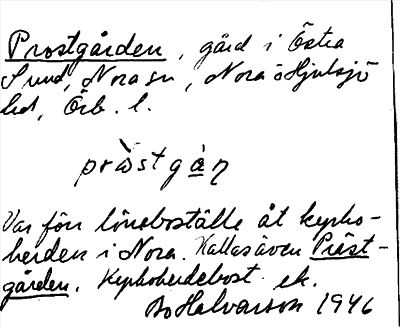 Prostgården, gård i Östra
Sund, Nora sn, Nora o Hjulsjö
hd, Örb. l.
pròstgàn
Var förr löneboställe åt kyrko-
herden i Nora. Kallas även Präst-
gården. Kyrkoherdebost. ek.
Bo Halvarson 1946